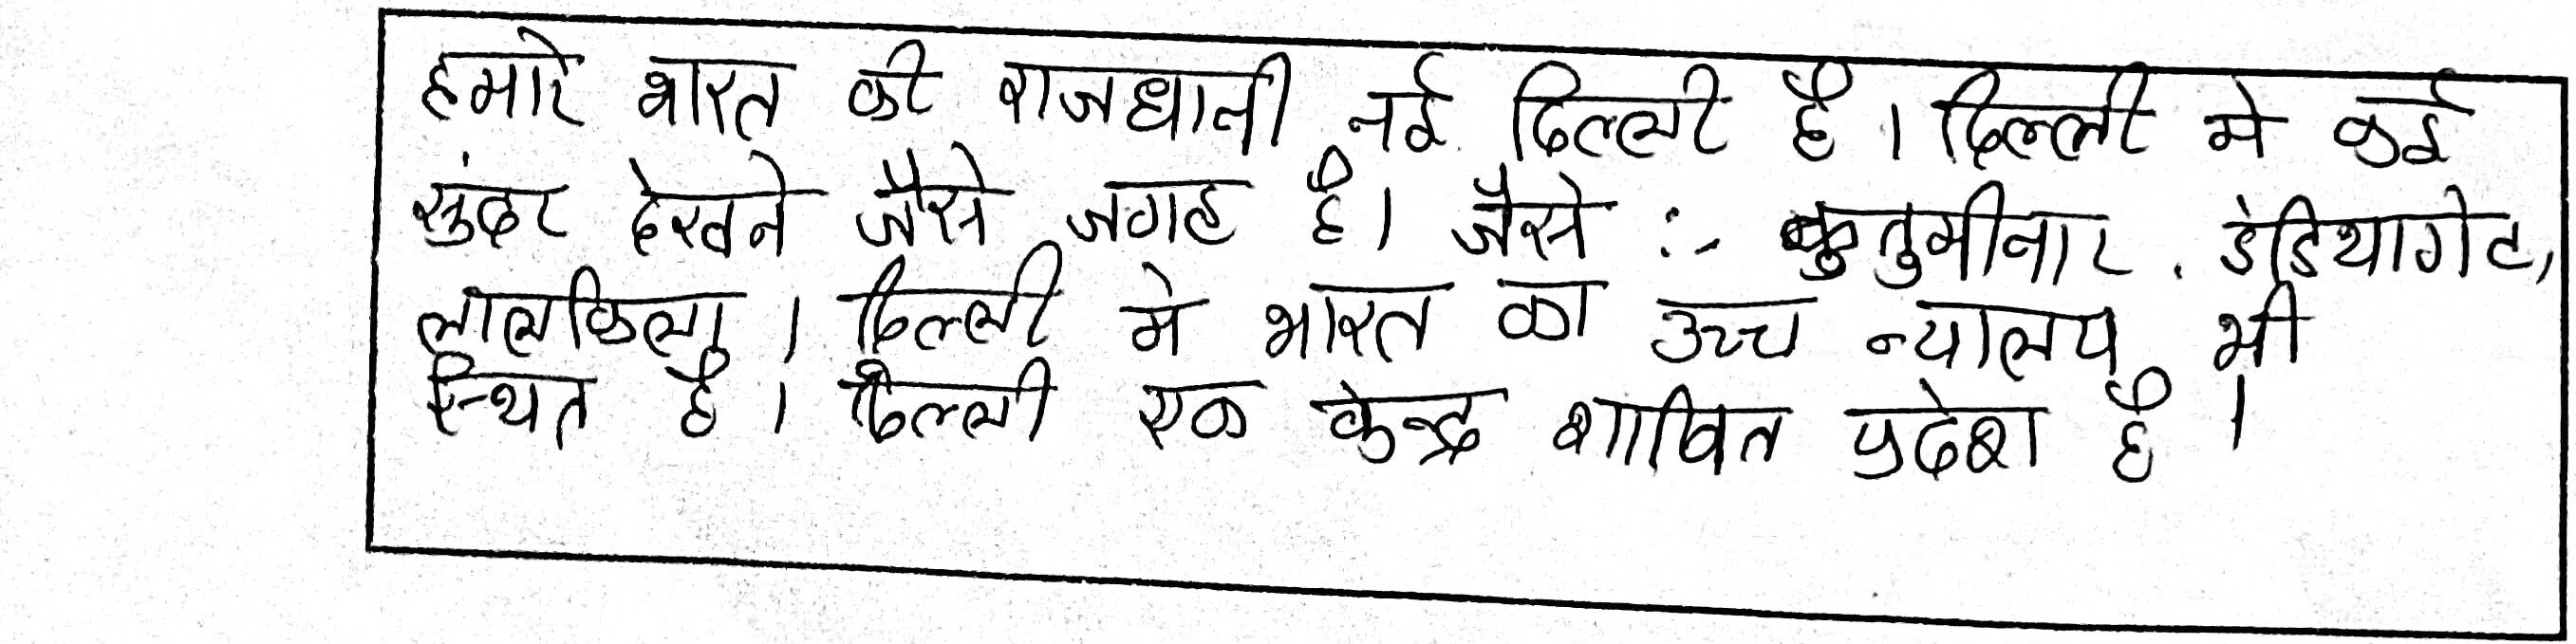 हमारे भारत की राजधानी नई दिल्ली है। दिल्ली मे कई
सुंदर देखने जैसे जगह है। जैसे :- कुतुमीनार, इंडियागेट,
लालकिला। दिल्ली मे भारत का उच्च न्यालय भी
स्थित है। दिल्ली एक केन्द्र शाषित प्रदेश है।